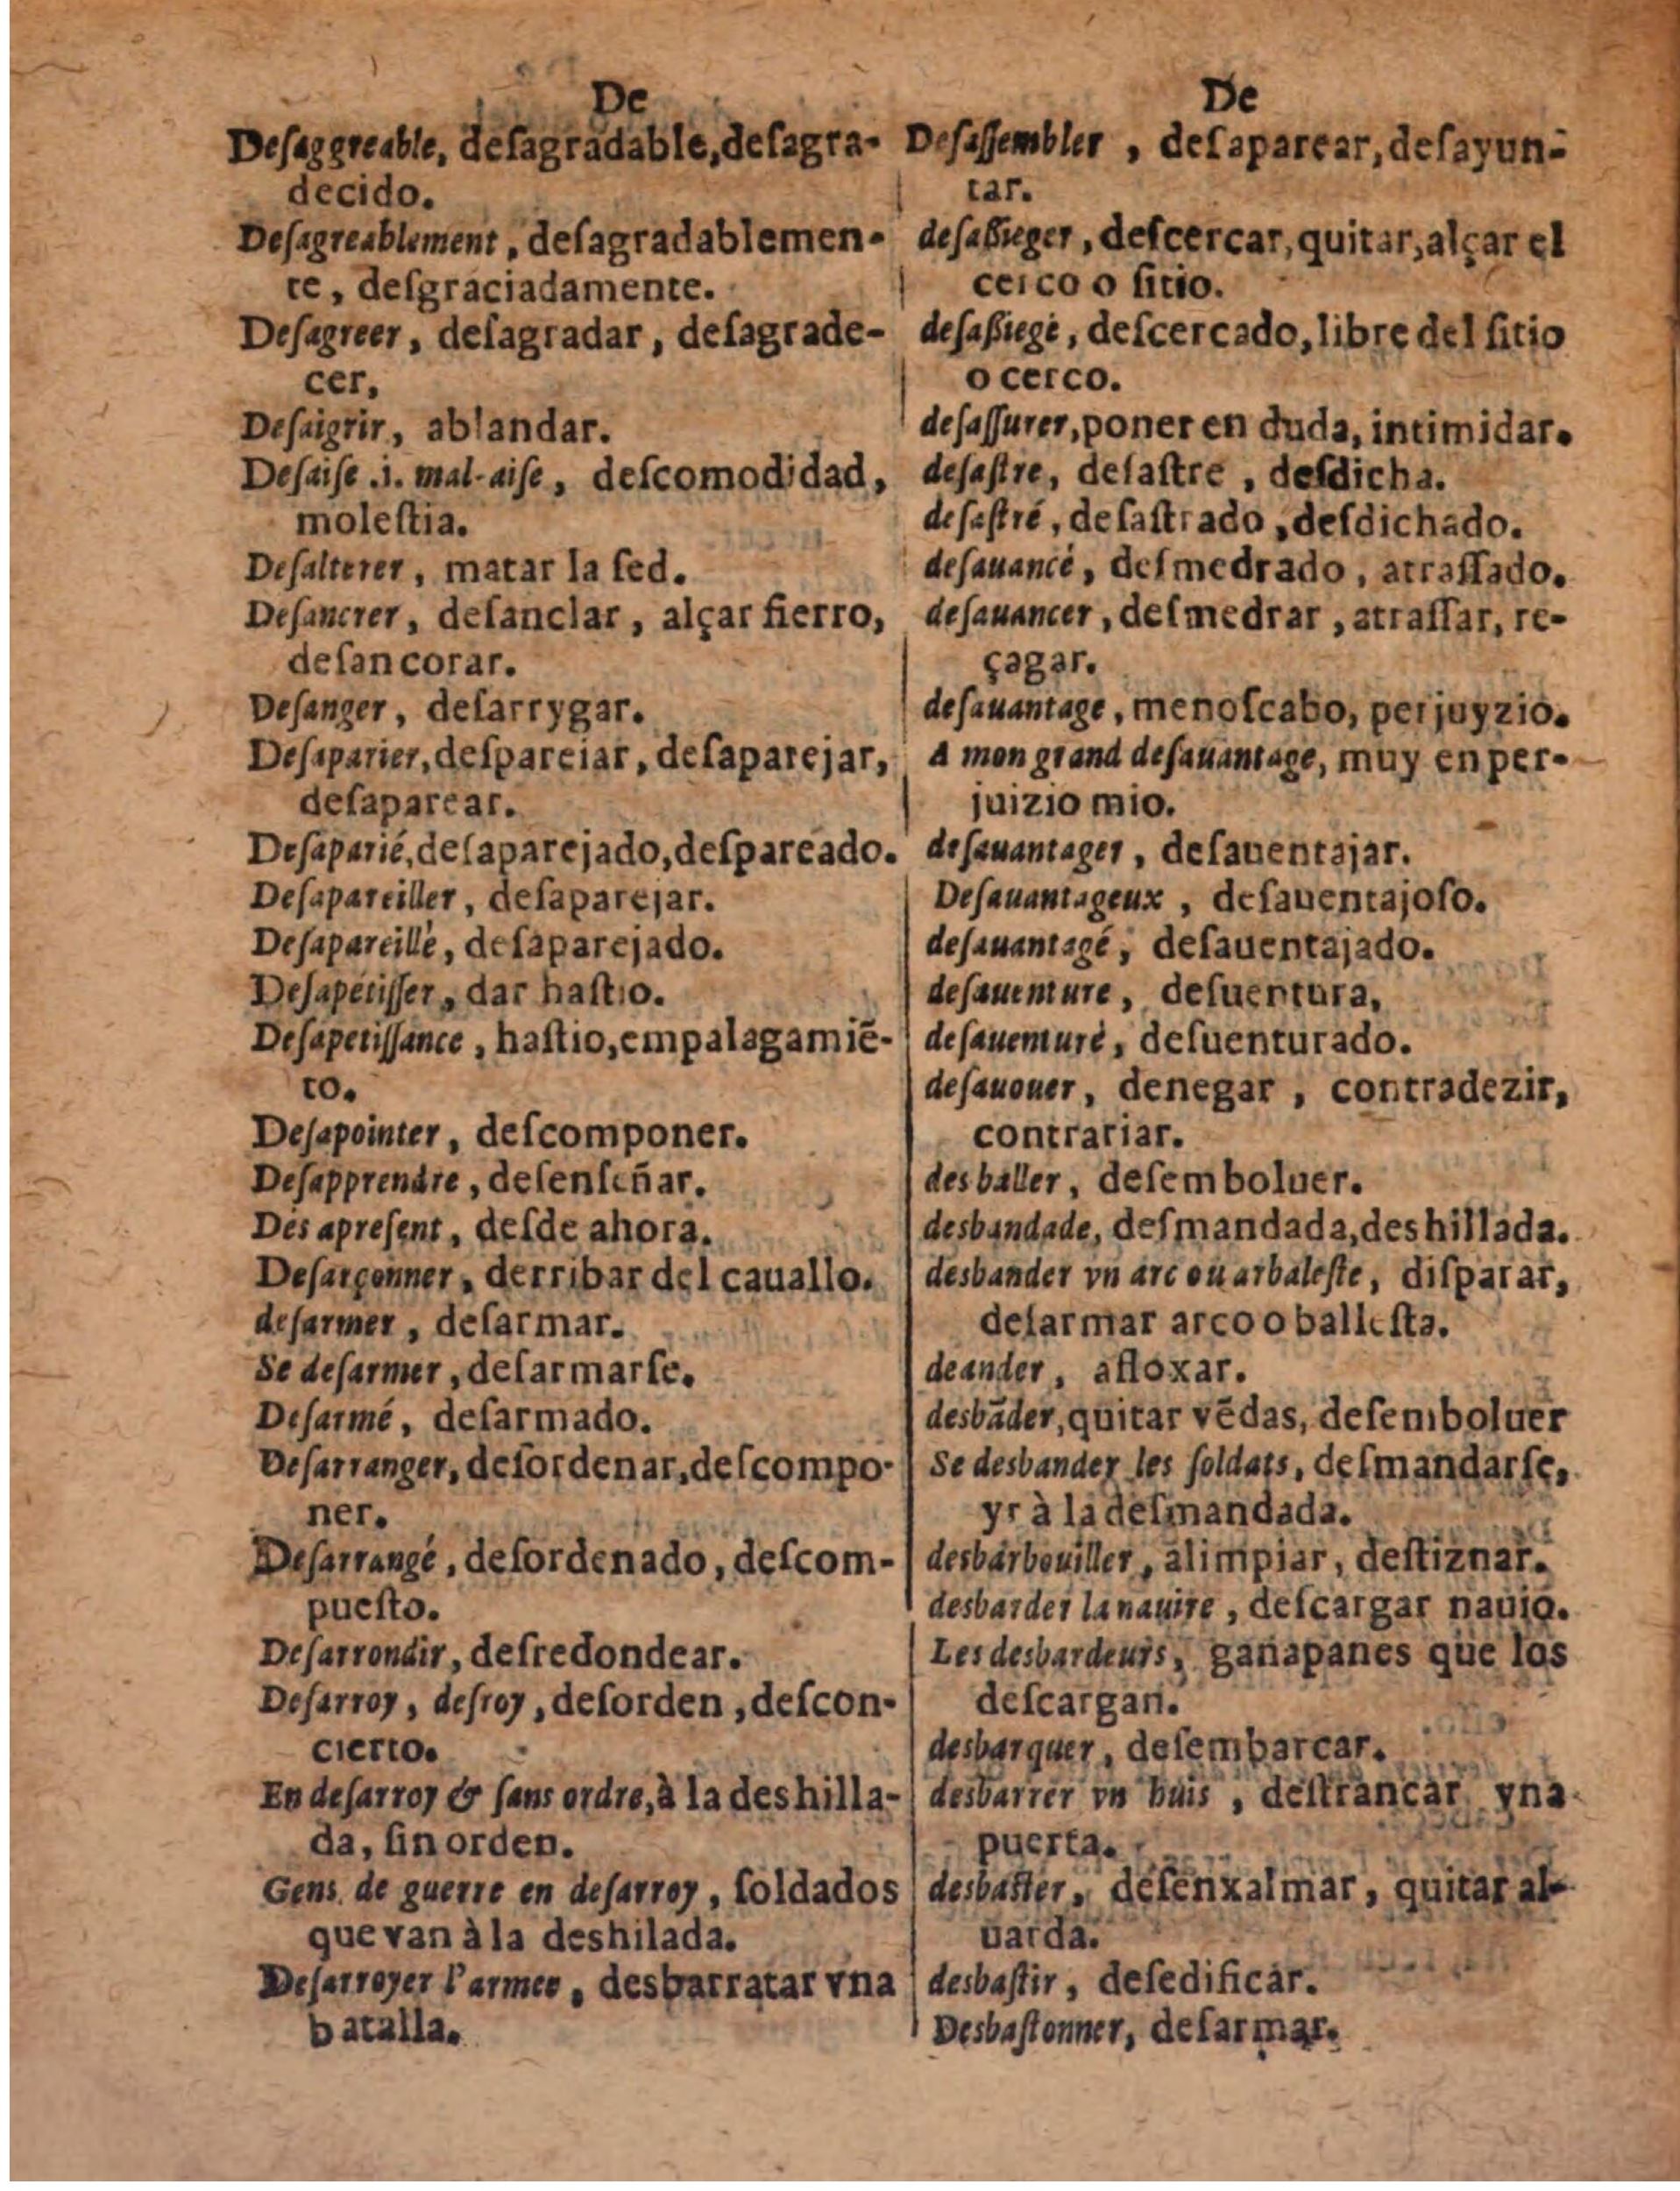 De
Deſaggreable, deſagradable, deſagra-
decido.
Deſagreablement, deſagradablemen-
te, deſgraciadamente.
Deſagreer, deſagradar, deſagrade-
cer,
Deſaigrir, ablandar.
Deſaiſe .i. mal-aiſe, deſcomodidad,
moleſtia.
Deſalterer, matar la ſed.
Deſancrer, deſanclar, alçar fierro,
deſancorar.
Deſanger, deſarrygar.
Deſaparier, deſpareiar, deſaparejar,
deſaparear.
Deſaparié, deſaparejado, deſpareado.
Deſapareiller, deſaparejar.
Deſapareillè, deſaparejado.
Deſapetiſſer, dar haſtio.
Deſapetiſſance, haſtio, empalagamiẽ-
to.
Deſapointer, deſcomponer.
Deſapprendre, deſenſeñar.
Des apreſent, deſde ahora.
Deſarçonner, derribar del cauallo.
deſarmer, deſarmar.
Se deſarmer, deſarmarſe.
Deſarmé, deſarmado.
Deſarranger, deſordenar, deſcompo-
ner.
Deſarrangé, deſordenado, deſcom-
pueſto.
Deſarrondir, deſredondear.
Deſarroy, deſroy, deſorden, deſcon-
cierto.
En deſarroy & ſans ordre, à la deshilla-
da, ſin orden.
Gens de guerre en deſarroy, ſoldados
que van à la deshilada.
Deſarroyer l'armee, desbarratar vna
batalla.
De
Deſaſſembler, deſaparear, deſayun-
tar.
deſaßieger, deſcercar, quitar, alçar el
cerco o ſitio.
deſaßiegè, deſcercado, libre del ſitio
o cerco.
deſaſſurer, poner en duda, intimidar.
deſaſtre, deſaſtre, deſdicha.
deſaſtré, deſaſtrado, deſdichado.
deſauancé, deſmedrado, atraſſado.
deſauancer, deſmedrar, atraſſar, re-
çagar.
deſauantage, menoſcabo, perjuyzio.
A mon grand deſauantage, muy en per-
juizio mio.
deſauantager, deſauentajar.
Deſauantageux, deſauentajoſo.
deſauantagé, deſauentajado.
deſauenture, deſuentura,
deſauenturè, deſuenturado.
deſauouer, denegar, contradezir,
contrariar.
desballer, deſemboluer.
desbandade, deſmandada, deshillada.
desbander vn arc ou arbaleſte, diſparar,
deſarmar arco o balleſta.
deander, afloxar.
desbãder, quitar vẽdas, deſemboluer
Se desbander les ſoldats, deſmandarſe,
yr à la deſmandada.
desbarbouiller, alimpiar, deſtiznar.
desbarder la nauire, deſcargar nauio.
Les desbardeurs, ganapanes que los
deſcargan.
desbarquer, deſembarcar.
desbarrer vn huis, deſtrancar vna
puerta.
desbaſter, deſenxalmar, quitar al-
uarda.
desbaſtir, deſedificar.
Desbaſtonner, deſarmar.